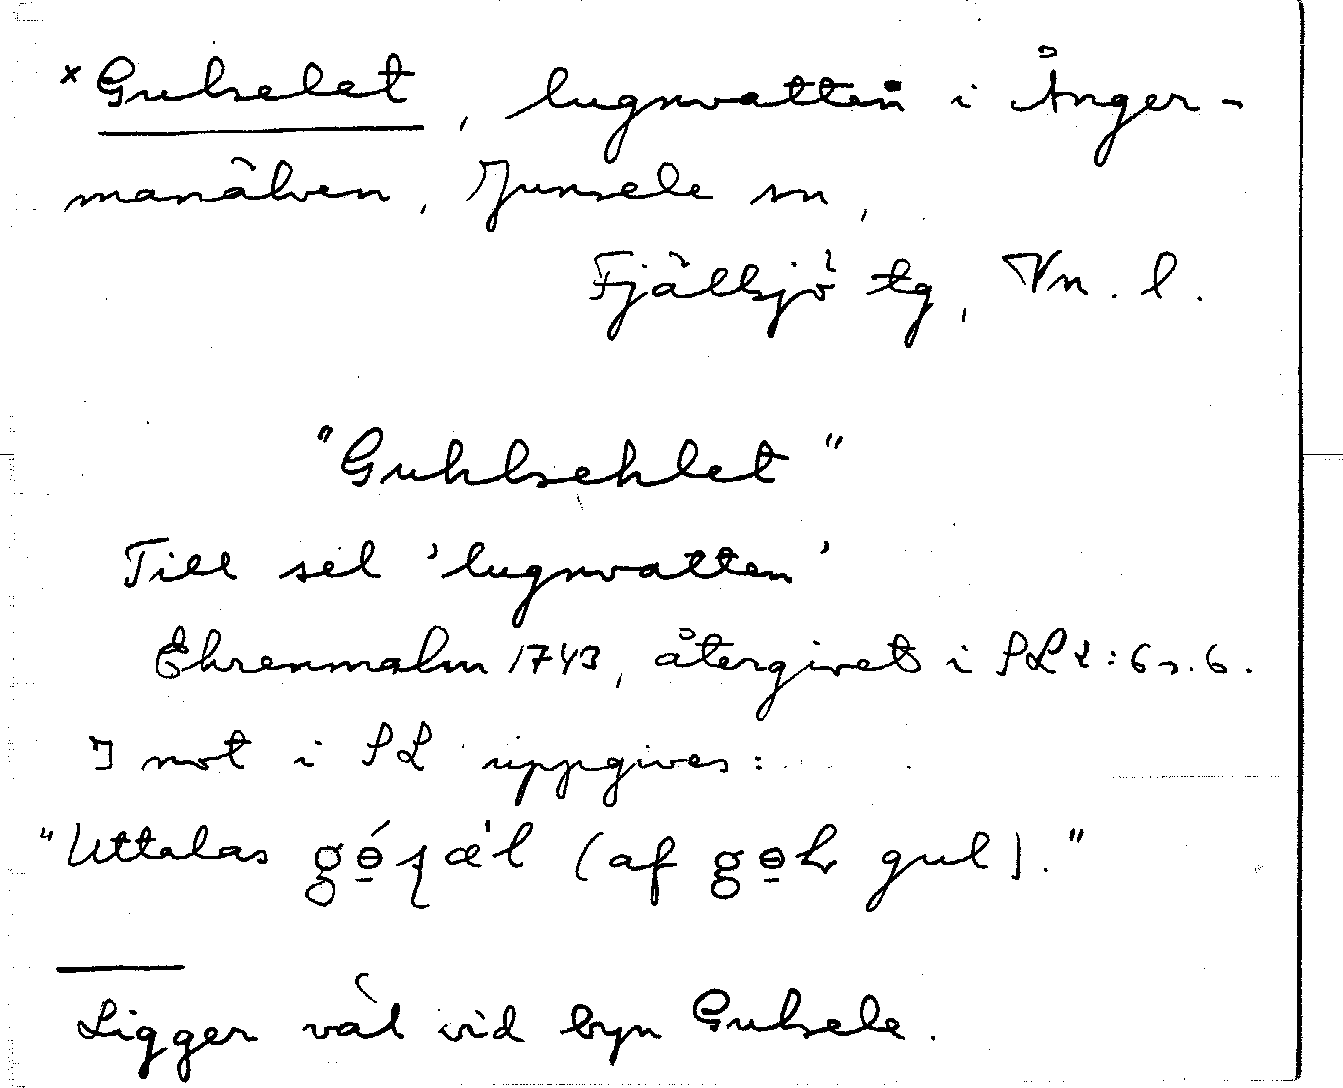 × Gulselet, lugnvatten i Ånger-
manälven, Junsele sn,
Fjällsjö tg, Vn. l.
"Guhlsehlet"
Till sel 'lugnvatten'
Ehrenmalm 1743, återgivet i SL 2: 6 s. 6.
I not i SL uppgives:
"Uttalas (af gul)."
Ligger väl vid byn Gulsele.